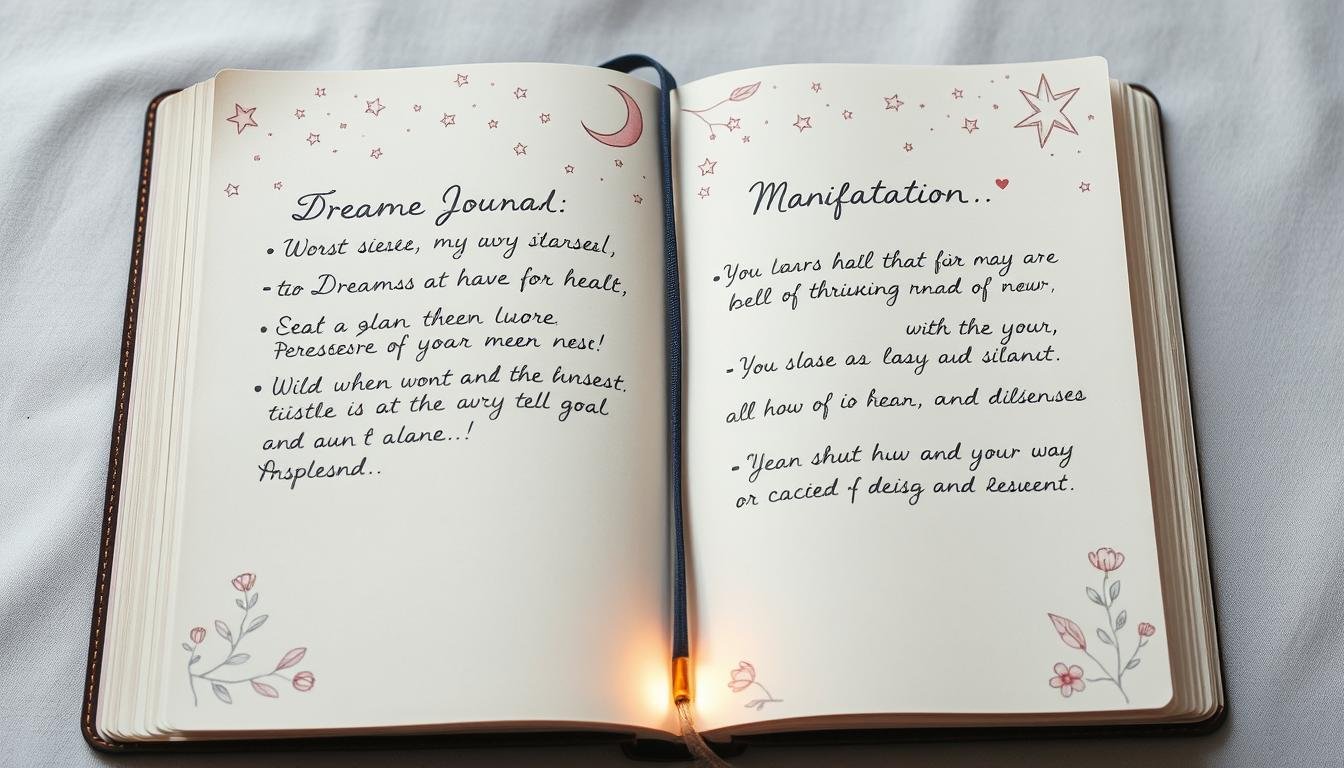 Dreame Jounal:
• Worst sieste, my avry starsed,
- to Dreamss at have for healt,
• Seat a glan theen luore.
Peressesre of yoar meen nest!
• Wild when wont and the hnsest.
tiistle is at the avry tell goal
and aun t alane..!
Ansplesnd..
Manifatation.. ♥
• You lairs hall that für may are
bell of thriuking rnad of newr,
with the your,
- You slase as lasy aud silanct.
all how of io hean, and dilsenses
- Yean shut huw and your way
or cacied f deisg and Resucent.